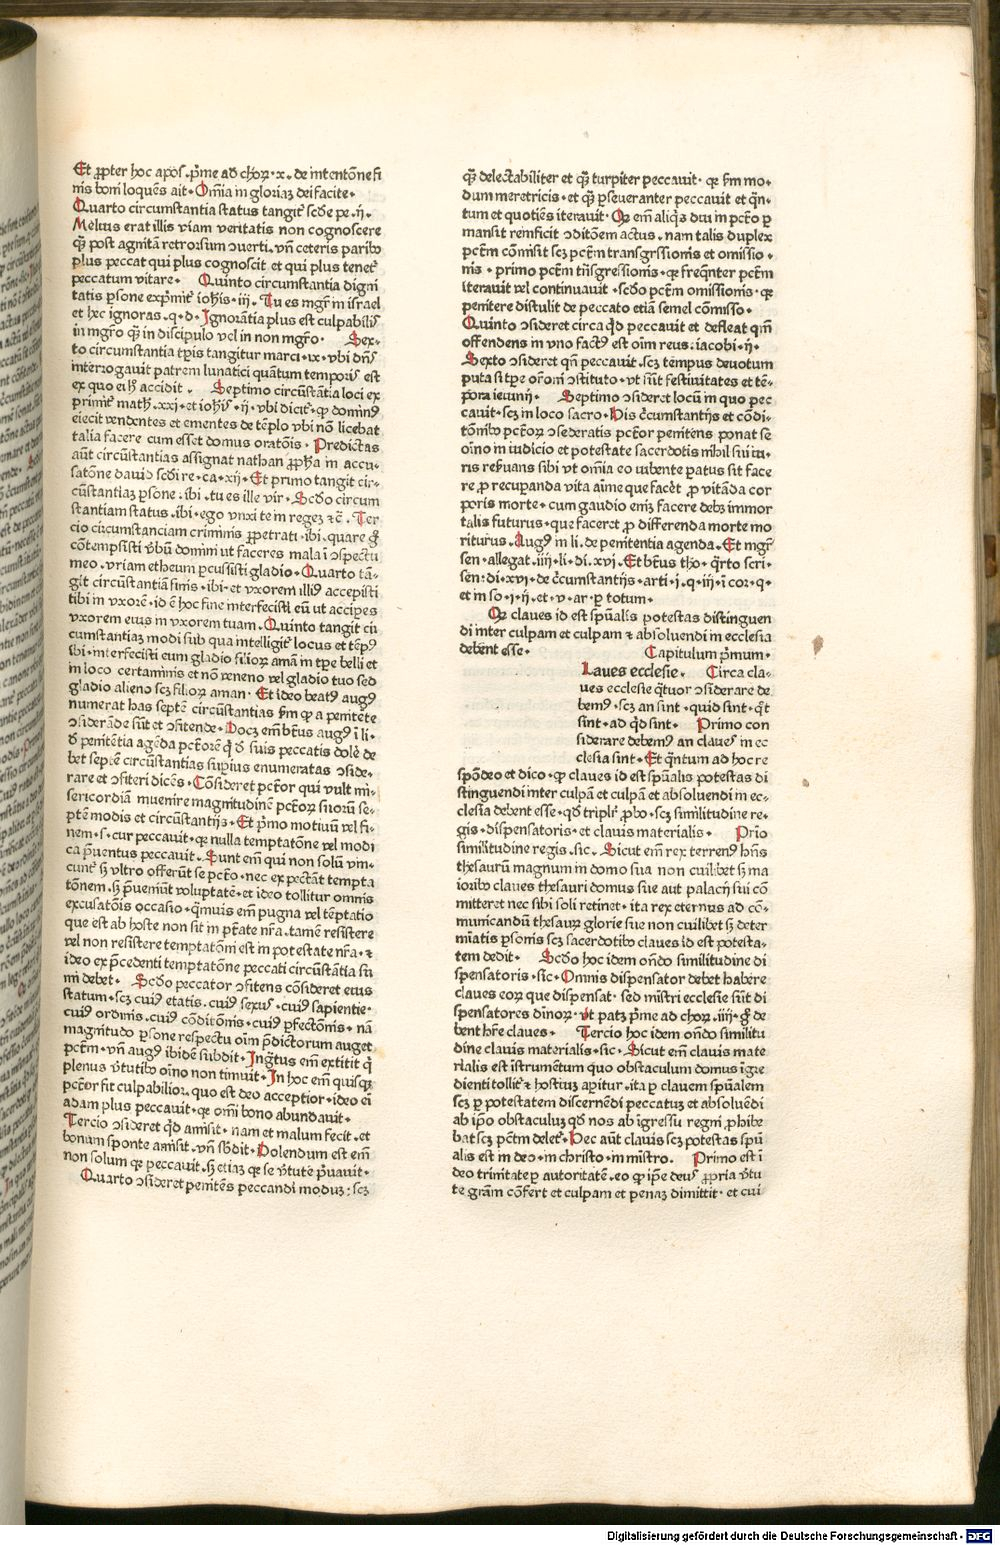 Et ꝓpter hoc apos. p̄me ad choꝝ.x. de intentōne fi
nis boni loquēs ait. Om̄ia in gloriaꝫ dei facite.
Quarto circumstantia status tangit᷑ scd̄e pe.ij.
Melius erat illis viam veritatis non cognoscere
qꝫ post agnitā retrorsum ↄuerti. vn̄ ceteris paribꝰ
plus peccat qui plus cognoscit et qui plus tenet᷑
peccatum vitare. Quinto circumstantia digni
tatis ꝑsone exprimit᷑ ioh̄is.iij. Tu es mgr̄ in israel
et hec ignoras.q.d. Ignorātia plus est culpabilis
in mgr̄o qꝫ in discipulo vel in non mgr̄o. Sex-
to circumstantia tꝑis tangitur marci.ix. vbi dn̄s
interrogauit patrem lunatici quātum temporis est
ex quo ei h̄ accidit. Septimo circūstātia loci ex
primit᷑ math.xxi. et ioh̄is.ij. vbi dicit᷑. ꝙ dominꝰ
eiecit vendentes et ementes de tēplo vbi nō licebat
talia facere cum esset domus oratōis. Predictas
aūt circūstātias assignat nathan ꝓph̄a in accu-
satōne dauid scd̄i re.ca.xij. Et primo tangit cir-
cūstantiaꝫ ꝑsone. ibi. tu es ille vir. Scd̄o circum
stantiam status. ibi. ego vnxi te in regeꝫ ⁊ c̄. Ter
cio circumstanciam criminis ꝑpetrati. ibi. quare ḡ
cōtempsisti v̄bū domini ut faceres mala ī ↄspectu
meo. vriam etheum ꝑcussisti gladio. Quarto tā-
git circūstantiā finis. ibi. et vxorem illiꝰ accepisti
tibi in vxorē. id ē hoc fine interfecisti eū ut acciꝑes
vxorem eius in vxorem tuam. Quinto tangit cir
cumstantiaꝫ modi sub qua intelligit᷑ locus et tēpꝰ
ibi. interfecisti eum gladio filioꝝ amā in tꝑe belli et
in loco certaminis et nō veneno vel gladio tuo sed
gladio alieno scꝫ filioꝝ aman. Et ideo beatꝰ augꝰ
numerat has septē circūstantias fm ꝙ a penitēte
ↄsiderāde sūt et ↄfitende. Docꝫ em̄ btūs augꝰ ī li.
d̄ penitētia agēda pctōrē q̄ d̄ suis peccatis dolē de
bet septē circūstantias suꝑius enumeratas ↄside-
rare et ↄfiteri dicēs. Cōsideret pctōr qui vult mi-
sericordiā inuenire magnitudinē pctōꝝ suoꝝ se-
ptē modis et circūstantijs. Et p̄mo motiuū vel fi-
nem.s. cur peccauit. qꝫ nulla temptatōne vel modi
ca p̄uentus peccauit. Sunt em̄ qui non solū vin-
cunt᷑ sꝫ vltro offerūt se pctō. nec expectāt tempta
tōnem. sꝫ p̄ueniūt voluptatē. et ideo tollitur omnis
excusatōis occasio. qꝫuis em̄ pugna vel tēptatio
que est ab hoste non sit in ptāte nr̄a. tamē resistere
vel non resistere temptatōni est in potestate nr̄a. ⁊
ideo ex p̄cedenti temptatōne peccati circūstātia su
mi debet. Scd̄o peccator ↄfitens cōsideret eius
statum. scꝫ cuiꝰ etatis. cuiꝰ sexus. cuiꝰ sapientie.
cuiꝰ ordinis. cuiꝰ cōditōnis. cuiꝰ ꝑfectōnis. nā
magnitudo ꝑsone respectu oīm p̄dictorum auget
pctm̄. vn̄ augꝰ ibidē subdit. Ingꝰtus em̄ extitit q̄
plenus v̄tutibꝰ oīno non timuit. In hoc em̄ quisqꝫ
pctōr fit culpabilior. quo est deo acceptior. ideo em̄
adam plus peccauit. qꝫ om̄i bono abundauit.
Tercio ↄsideret qd̄ amisit. nam et malum fecit. et
bonum sponte amisit. vn̄ sb̄dit. Dolendum est em̄
non solum qꝫ peccauit. sꝫ etiaꝫ qꝫ se v̄tute p̄uauit.
Quarto ↄsideret penitēs peccandi moduꝫ: scꝫ
qꝫ delectabiliter et qꝫ turpiter peccauit. qꝫ fm mo-
dum meretricis. et qꝫ ꝑseueranter peccauit et qn̄-
tum et quotiēs iterauit. Qꝫ em̄ aliq̄s diu in pctō ꝑ
mansit reinficit ↄditōem actus. nam talis duplex
pctm̄ cōmisit scꝫ pctm̄ transgrssionis et omissio-
nis. primo pctm̄ trn̄sgressionis. qꝫ freqn̄ter pctm̄
iterauit vel continuauit. scd̄o pctm̄ omissionis. qꝫ
penitere distulit de peccato etiā semel cōmisso.
Quinto ↄsideret circa qd̄ peccauit et defleat qm̄
offendens in vno factꝰ est oīm reus: iacobi.ij.
Sexto ↄsideret qn̄ peccauit. scꝫ tempus deuotum
puta si tꝑe orōni ↄstituto. vt sūt festiuitates et tē-
pora ieiunij. Septimo ↄsideret locū in quo pec
cauit. scꝫ in loco sacro. His c̄cumstantijs et cōdi-
tōnibꝰ pctōꝝ ↄsideratis pctōr penitens ponat se
oīno in iudicio et potestate sacerdotis nihil sui iu-
ris reseruans sibi vt om̄ia eo iubente paratus sit face
re ꝓ recuperanda vita aīme que facēt ꝓ vitāda cor
poris morte. cum gaudio eniꝫ facere debꝫ immor
talis futurus. que faceret ꝓ differenda morte mo
riturus. Augꝰ in li. de penitentia agenda. Et mgr̄
sen. allegat.iiij.li.di.xvi. Et btūs tho. q̄rto scri.
sen: di.xvi. de c̄cumstantijs. arti.i.q.iij. ī cor.q.
et in so.i.ij. et.v. ar.ꝑ totum.
Qꝫ claues id est spūalis potestas distinguen
di inter culpam et culpam ⁊ absoluendi in ecclesia
debent esse. Capitulum p̄mum.
Laues ecclesie. Circa cla-
ues ecclesie q̄tuor ↄsiderare de
bemꝰ. scꝫ an sint. quid sint. q̄t
sint. ad qd̄ sint. Primo con
siderare debemꝰ an claues in ec
clesia sint. Et qn̄tum ad hoc re
spōdeo et dico. ꝙ claues id est spūalis potestas di
stinguendi inter culpā et culpam et absoluendi in ec-
clesia debent esse. qd̄ triplr̄ ꝓbo. scꝫ similitudine re-
gis. dispensatoris. et clauis materialis. Prīo
similitudine regis. sic. Sicut em̄ rex terrenꝰ hn̄s
thesaurū magnum in domo sua non cuilibet sꝫ ma
ioribꝰ claues thesauri domus sue aut palacij sui cō
mitteret nec sibi soli retinet. ita rex eternus ad cō-
municandū thesauꝝ glorie sue non cuilibet sꝫ deter
mīatis ꝑsonis scꝫ sacerdotibꝰ claues id est potesta-
tem dedit. Scd̄o hoc idem on̄do similitudine di
spensatoris. sic. Omnis dispensator debet habere
claues eoꝝ que dispensat. sed mīstri ecclesie sūt di
spensatores diuinoꝝ. vt patꝫ p̄me ad choꝝ.iiij. ḡ de
bent hr̄e claues. Tercio hoc idem on̄do similitu
dine clauis materialis. sic. Sicut em̄ clauis mate
rialis est īstrumentum quo obstaculum domus īgre
dienti tollit᷑ ⁊ hostiuꝫ aperitur. ita ꝑ clauem spūalem
scꝫ ꝑ potestatem discernēdi peccatuꝫ et absoluēdi
ab ip̄o obstaculuꝫ qd̄ nos ab īgressu regni ꝓhibe
bat scꝫ pctm̄ delet᷑. Hec aūt clauis scꝫ potestas spū
alis est in deo. in christo. in mīstro. Primo est ī
deo trinitate ꝑ autoritatē. eo ꝙ ip̄e deus ꝓpria v̄tu
te grām cōfert et culpam et penaꝫ dimittit. et cui
Digitalisierung gefördert durch die Deutsche Forschungsgemeinschaft - DFG